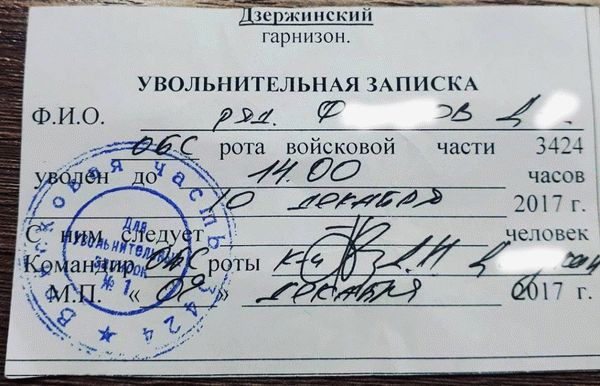 Дзержинский
гарнизон.
УВОЛЬНИТЕЛЬНАЯ ЗАПИСКА
Ф.И.О. ряд. Ф ов Д
ОБС рота войсковой части 3424
уволен до 14.00 часов
10 декабря 2017 г.
С ним следует человек
Командир ОБС роты к-н
М.П. « 09 » декабря 2017 г.
Войсковая часть 3424
Для
увольнительных
записок
№ 1